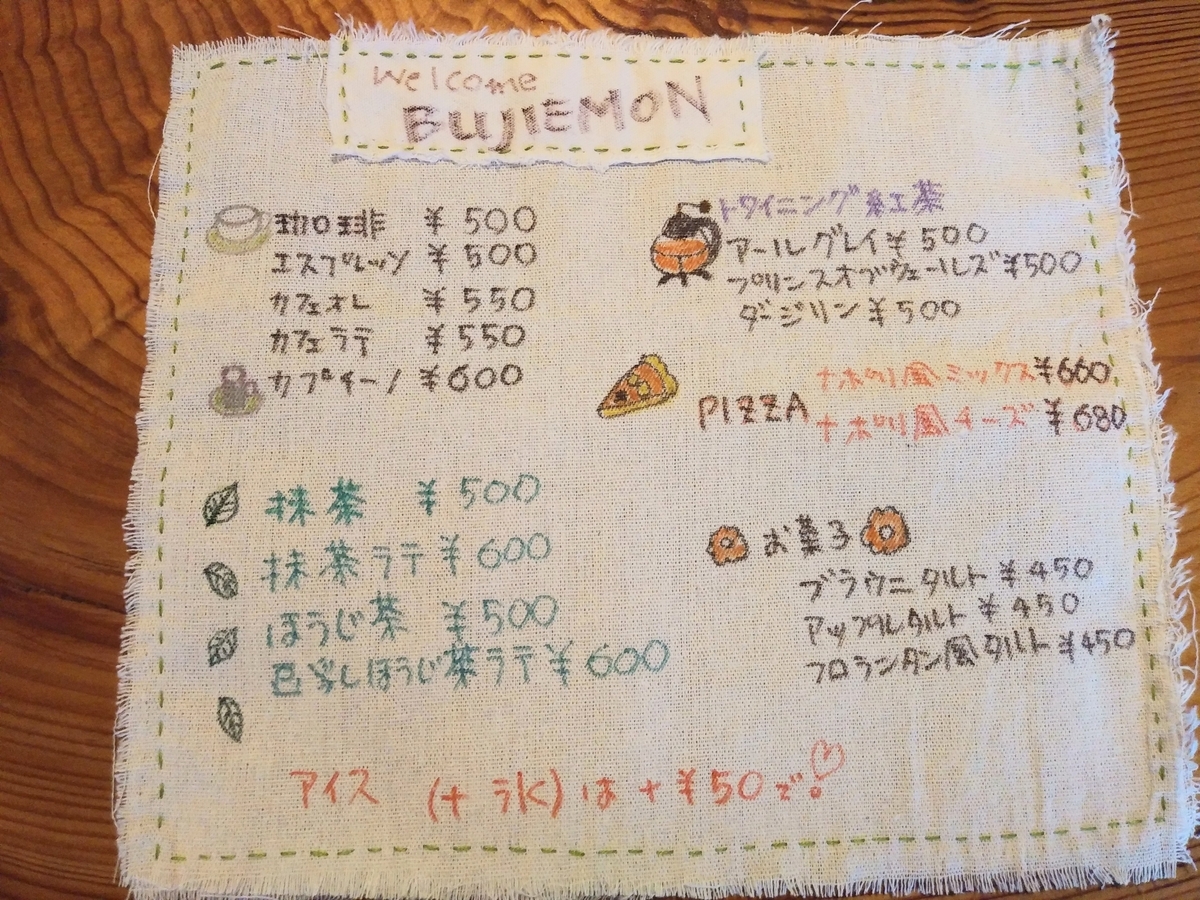 Welcome
BUJIEMON
珈琲 ¥500
エスプレッソ ¥500
カフェオレ ¥550
カフェラテ ¥550
カプチーノ ¥600
抹茶 ¥500
抹茶ラテ ¥600
ほうじ茶 ¥500
ほうじ茶ラテ ¥600
トワイニング紅茶
アールグレイ ¥500
プリンスオブウェールズ ¥500
ダージリン ¥500
PIZZA
ナポリ風ミックス ¥660
ナポリ風チーズ ¥680
お菓子
ブラウニタルト ¥450
アップルタルト ¥450
フロランタン風タルト ¥450
アイス (+氷)は+¥50で。